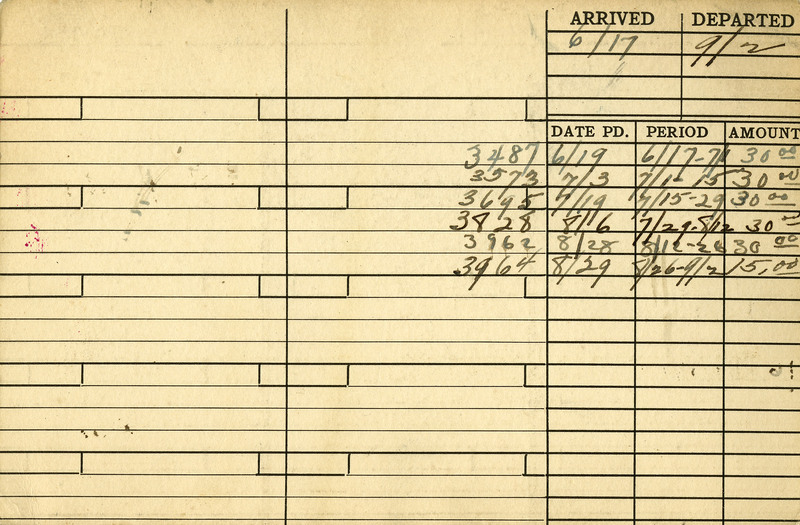 ARRIVED DEPARTED
6/17 9/2
DATE PD. PERIOD AMOUNT
3487 6/19 6/17-7/1 30 00
3573 7/3 7/1-15 30 00
3695 7/19 7/15-29 30 00
3828 8/6 7/29-8/12 30 00
3962 8/28 8/12-26 30 00
3964 8/29 8/26-9/2 15,00